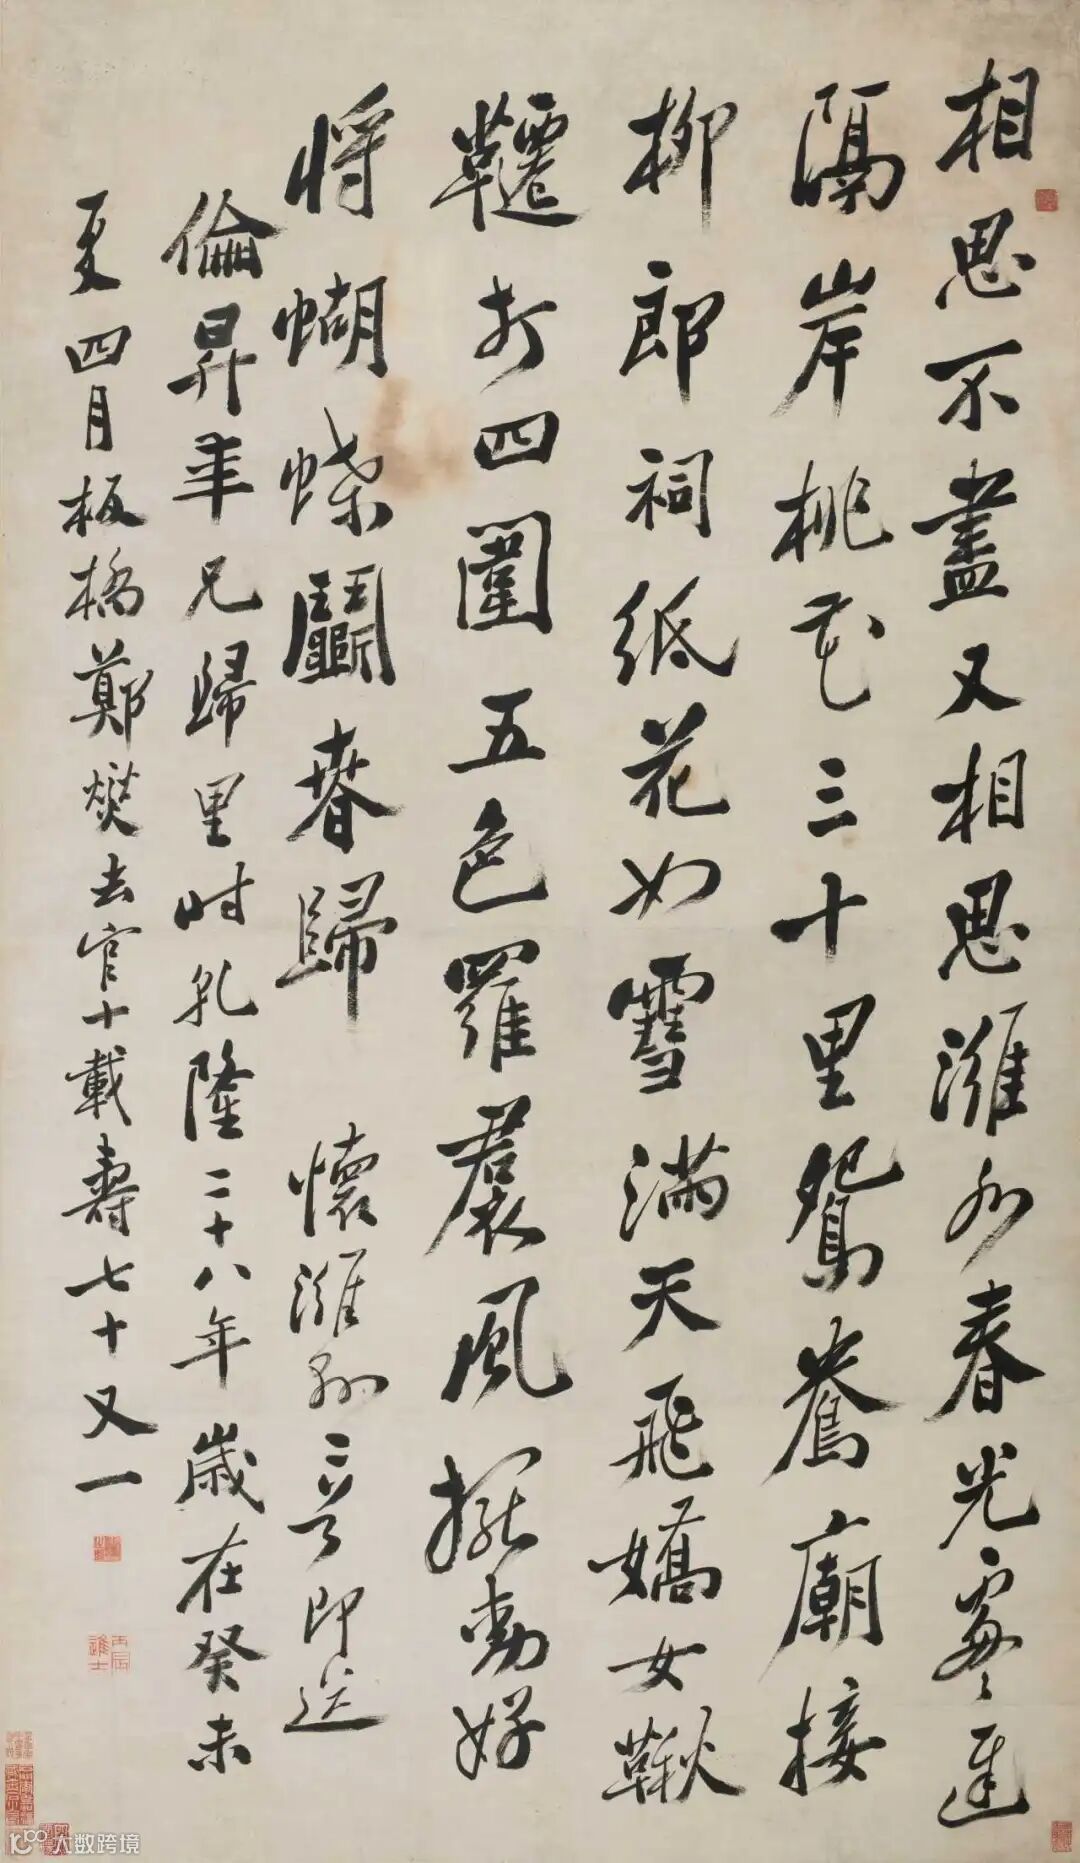 相思不盡又相思濰水春光處處遲
隔岸桃花三十里鴛鴦廟接
柳郎祠紙花如雪滿天飛嬌女鞦
韆打四圍五色羅裠風擺動好
將蝴蝶鬭春歸 懷濰縣二首即送
倫昇年兄歸里時乾隆二十八年歲在癸未
夏四月板橋鄭燮去官十載壽七十又一
丙辰進士
大数跨境